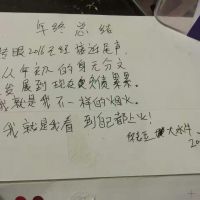 年终总结
转眼2016已经接近尾声,
从年初的身无分文
发展到现在负债累累。
我就是我不一样的烟火
我就是我看到自己都上火!
大冰
20